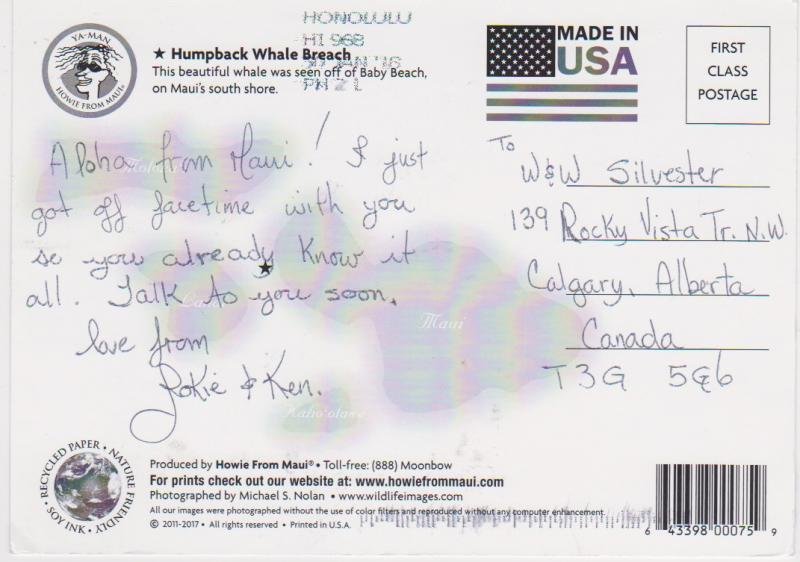 HONOLULU
HI 968
PM 2 L
YA-MAN
HOWIE FROM MAUI
★ Humpback Whale Breach
This beautiful whale was seen off of Baby Beach,
on Maui's south shore.
MADE IN
USA
FIRST
CLASS
POSTAGE
Aloha from Maui! I just
got off facetime with you
so you already know it
all. Talk to you soon.
love from
& Ken.
To
W&W Silvester
139 Rocky Vista Tr. N.W.
Calgary, Alberta
Canada
T3G 5G6
Maui
RECYCLED PAPER • NATURE FRIENDLY • SOY INK •
Produced by Howie From Maui® • Toll-free: (888) Moonbow
For prints check out our website at: www.howiefrommaui.com
Photographed by Michael S. Nolan • www.wildlifeimages.com
All our images were photographed without the use of color filters and reproduced without any computer enhancement.
© 2011-2017 • All rights reserved • Printed in U.S.A.
6 43398 00075 9